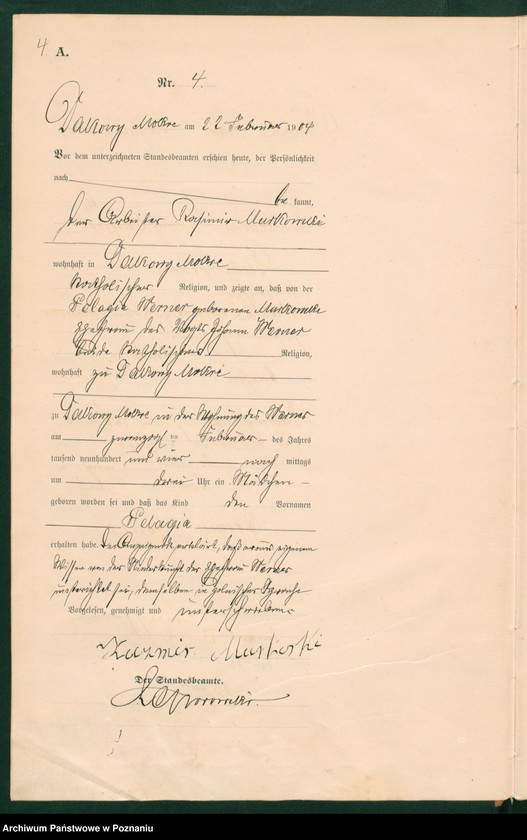 4 A.
Nr. 4.
Dalkowy Mokre am 22 Februar 1904
Vor dem unterzeichneten Standesbeamten erschien heute, der Persönlichkeit
nach
be kannt,
der Arbeiter Kasimir Murkowski
wohnhaft in Dalkowy Mokre
Katholischer Religion, und zeigte an, daß von der
Pelagia Werner geborenen Murkowski
Ehefrau des Vogts Johann Werner
beide Katholischer Religion,
wohnhaft zu Dalkowy Mokre
zu Dalkowy Mokre in der Wohnung des Werner
am zwanzig ten Februar des Jahres
tausend neunhundert und vier nach mittags
um drei Uhr ein Mädchen
geboren worden sei und daß das Kind den Vornamen
Pelagia
erhalten habe. Der Anzeigende erklärt, daß er aus eigenem
Wissen von der Niederkunft der Ehefrau Werner
unterrichtet sei, demselben in polnischer Sprache
Vorgelesen, genehmigt und unterschrieben
Kazmir
Der Standesbeamte.
Archiwum Państwowe w Poznaniu